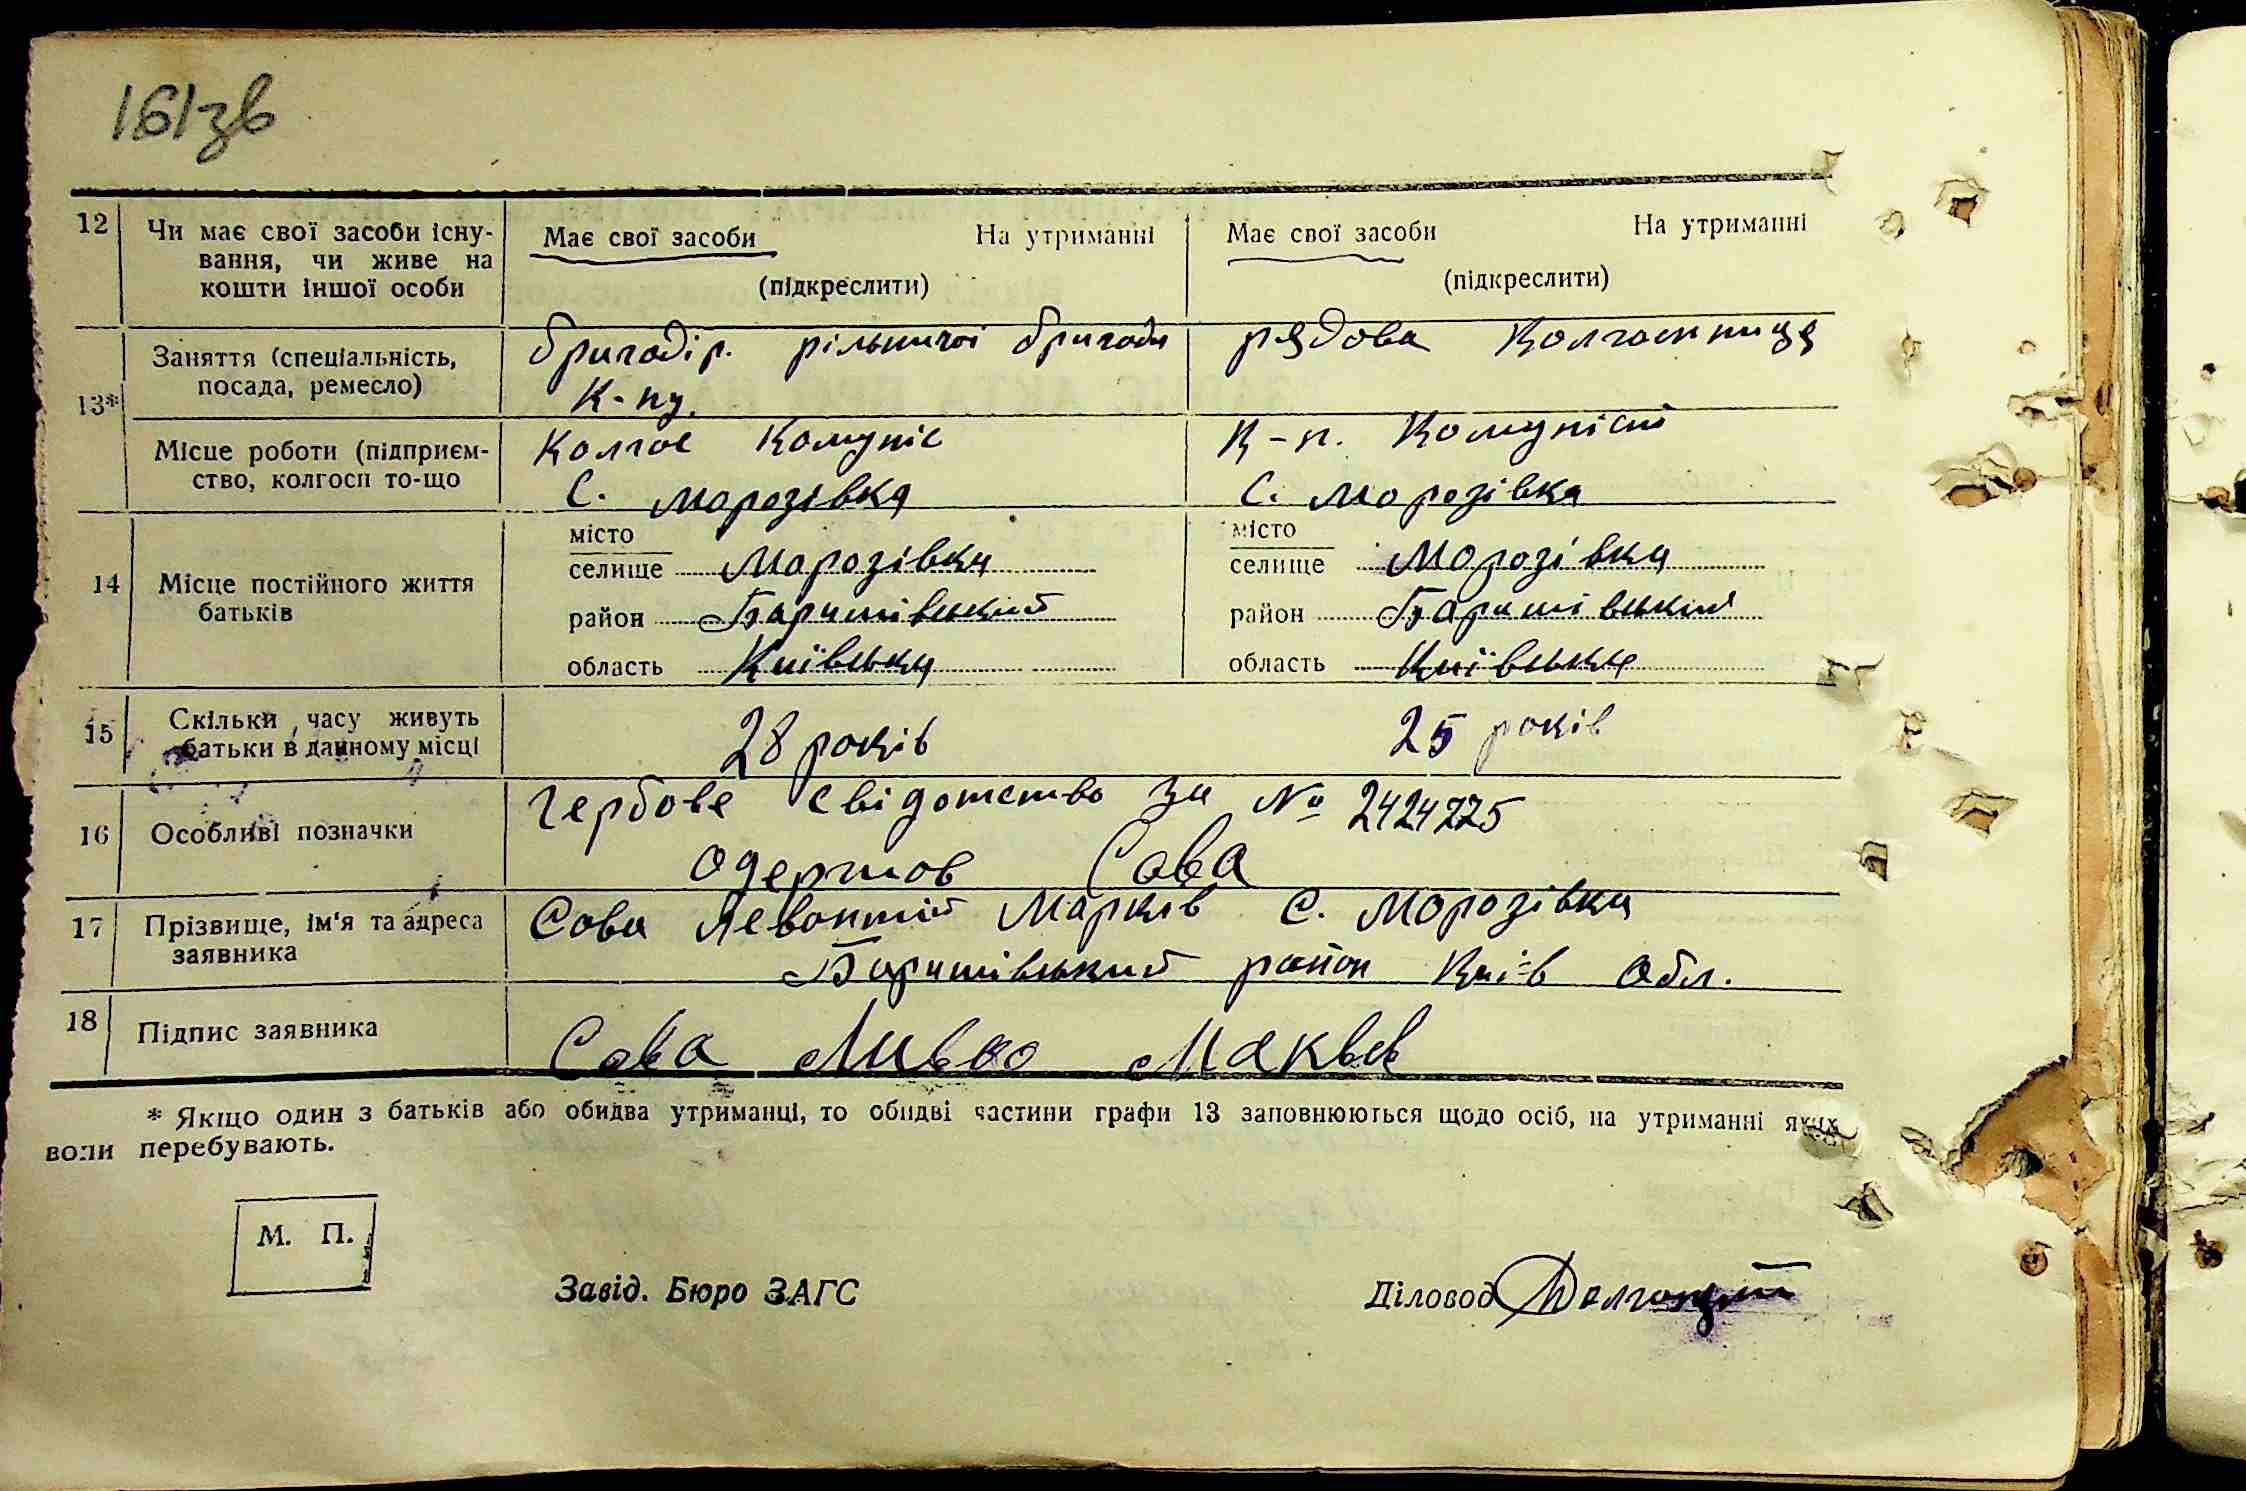 161зв
12 Чи має свої засоби існу-
вання, чи живе на
кошти іншої особи
Має свої засоби На утриманні
(підкреслити)
Має свої засоби На утриманні
(підкреслити)
13*
Заняття (спеціальність,
посада, ремесло)
бригадір. рільничої бригади
К-ну.
рядова колгоспниця
Місце роботи (підприєм-
ство, колгосп то-що
Колгос Комуніс
С. Морозівка
К-п. Комуніст
С. Морозівка
14 Місце постійного життя
батьків
місто
селище Морозівка
район Баришівський
область Київська
місто
селище Морозівка
район Баришівський
область Київська
15 Скільки часу живуть
батьки в данному місці
28 років
25 років
16 Особливі позначки
Гербове свідотство за №
одержав Сова
17 Прізвище, ім'я та адреса
заявника
Сова Левонтій Марків С. Морозівка
Баришівський район Киів обл.
18 Підпис заявника
Сова
* Якщо один з батьків або обидва утриманці, то обидві частини графи 13 заповнюються щодо осіб, на утриманні яких
вони перебувають.
М. П.
Завід. Бюро ЗАГС
Діловод